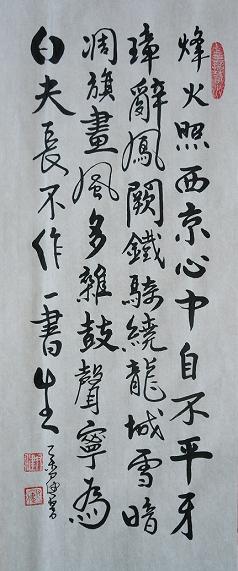 烽火照西京心中自不平牙
璋辭鳳闕鐵騎繞龍城雪暗
凋旗畫風多雜鼓聲寧為
百夫長不作一書生